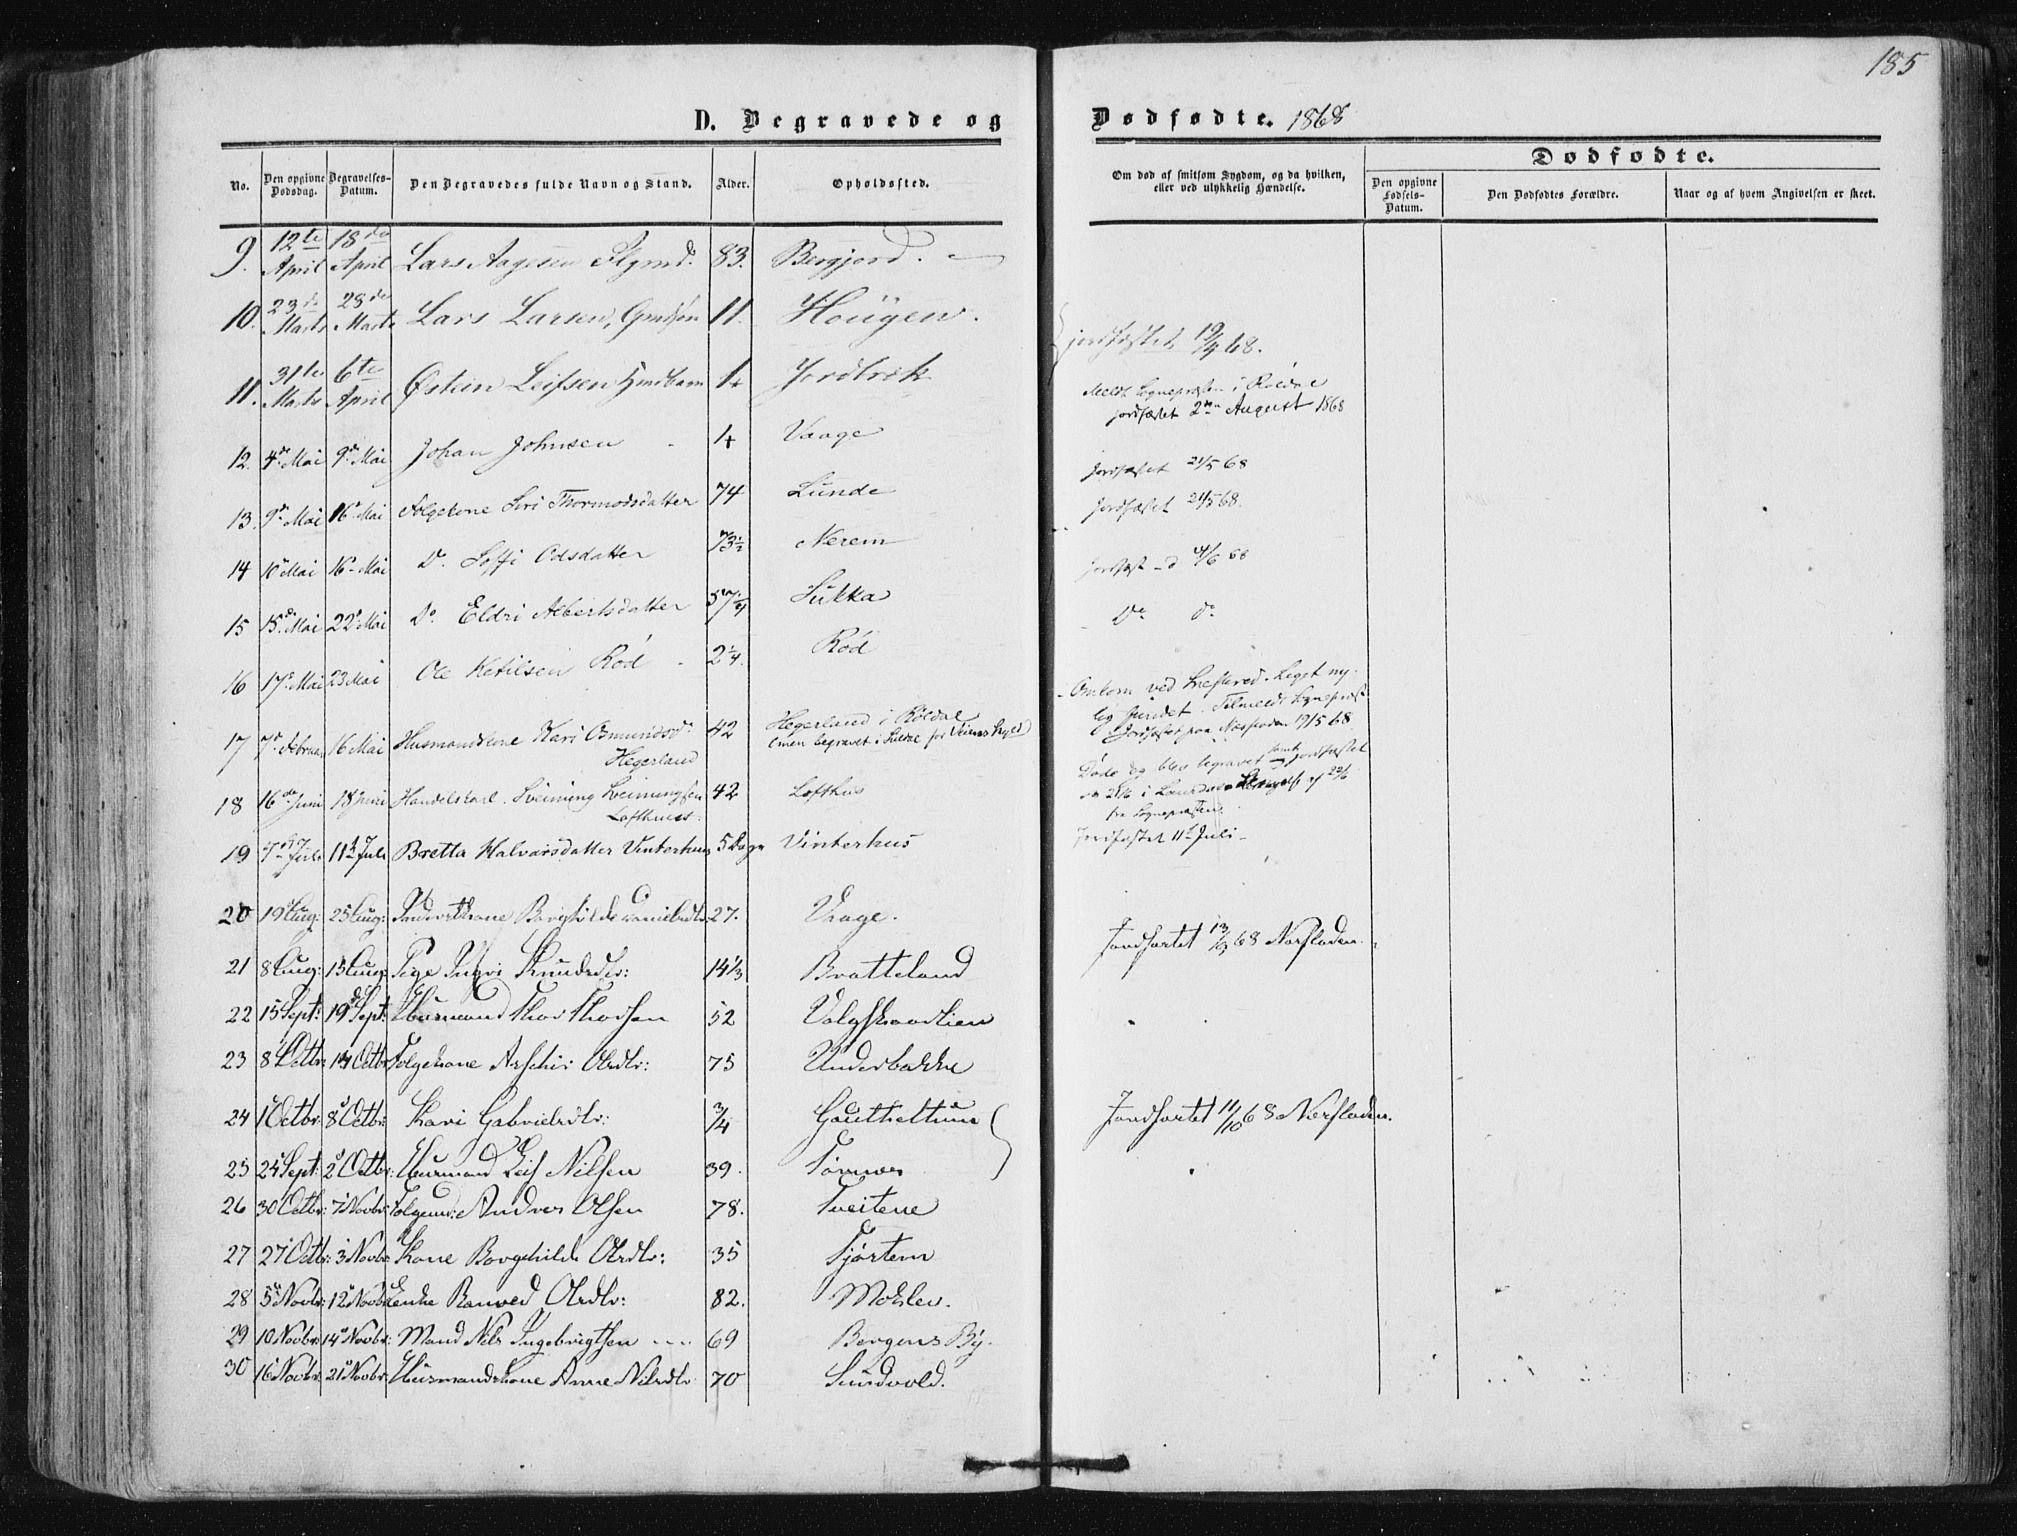 185
D. Begravede og Dødfødte. 1868
Dødfødte.
No. Den opgivne Dødsdag. Begravelses-Datum. Den Begravedes fulde Navn og Stand. Alder. Opholdssted. Om død af smitsom Sygdom, og da hvilken, eller ved ulykkelig Hændelse. Den opgivne Fødsels-Datum. Den Dødfødtes Forældre. Naar og af hvem Angivelsen er skeet.
9. 12te April 18de April Lars Aagesen 83. Bergjord.
10. 23de Marts 28de Marts Lars Larsen, 11. Hougen. jordfæstet 19/4 68.
11. 31te Marts 6te April Østein Leifsen 1 Jordbræk
Meldt Sognepræsten i Røldal
jordfæstet 2den August 1868
12. 4de Mai 9de Mai Johan Johnsen 1 Vaage jordfæstet 21/5 68
13. 9de Mai 16de Mai Folgekone Siri Thormodsdatter 74 Lunde jordfæstet 21/5 68.
14 10de Mai 16de Mai Do. Soffi Odsdatter 73½ Nerem 4/6 68
15 15de Mai 22de Mai Do. Eldri Albertsdatter 57 Sukka Do Do
16 17de Mai 23 Mai Ole Ketilsen Rød 2¼ Rød
Omkom ved Liget ny-
lig fundet. Tilmeldt Sognepræst
Jordfæstet paa Næsfladen 19/5 68
17 7de Februar 16 Mai Husmandskone Kari Osmundsdr Hegerland 42 Hegerland i Røldal
(men begravet i Suldal for Veiens Skyld)
Døde og blev begravet samt jordfæstet
fra Sognepræsten.
18 16de Juni 18 Juni Handelskarl Sveinung Sveinungsen Lofthuus. 42 Lofthus
19 7de Juli 11te Juli Bretta Halvarsdatter Vinterhus 5 Døgn Vinterhus Jordfæstet 11te Juli
20 19 Aug: 25 Aug: Borghilde Danielsdtr 27. Vaage.
21 8 Aug: 15 Aug: Pige Ingri Knudsdtr: 14⅓ Bratteland Jordfæstet 13/9 68 Næsfladen.
22 15 Sept: 19 Sept: Husmand Thor Thorsen 52
23 8 Octbr: 14 Octbr: Folgekone Olsdtr: 75 Underbakke
24 1 Octbr: 8 Octbr: Kari Gabrielsdtr: ¾ Jordfæstet 11/10 68 Næsfladen.
25 24 Sept: 2 Octbr: Husmand Leif Nilsen 39.
26 30 Octbr: 7 Novbr: Folgemd: Andres Olsen 78. Tveitene
27 27 Octbr: 3 Novbr: Kone Borghilde Olsdtr: 35
28 5 Novbr: 12 Novbr: Enke Ranved Olsdtr: 82. Mokleiv.
29 10 Novbr: 14 Novbr: Mand Nils Ingebrigtsen 69 Bergens By.
30 16 Novbr: 21 Novbr: Husmandskone Anne Nilsdtr 70 Sundvold.